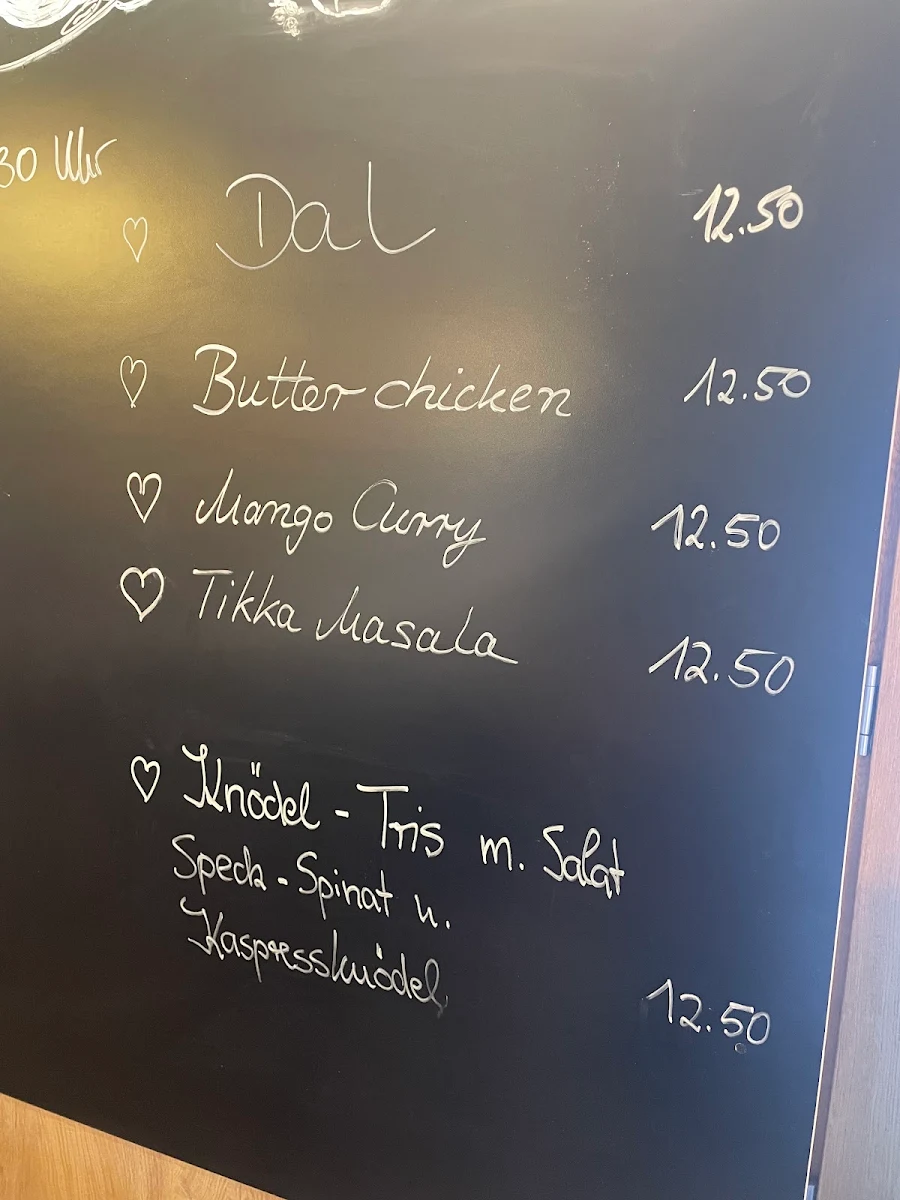 30 Uhr
♡ Dal 12.50
♡ Butter chicken 12.50
♡ Mango Curry 12.50
♡ Tikka Masala 12.50
♡ Knödel - Tris m. Salat
Speck - Spinat u.
Kaspressknödel 12.50